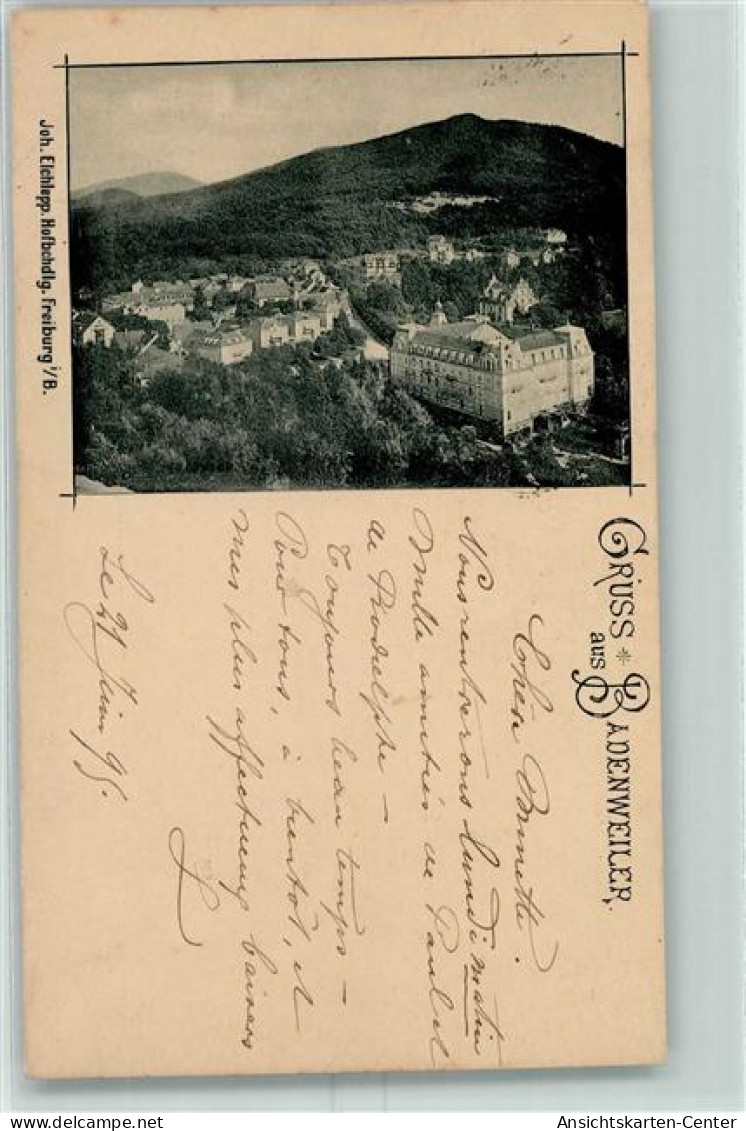 Joh. Elchlepp. Hofbchdlg. Freiburg i/B.
GRUSS * aus BADENWEILER.
Chère Brunette.
Nous rentrerons lundi matin
Mille amitiés de Paul et
de Rodolphe —
Toujours beau temps —
Pour tous, à bientôt, et
mes plus affectueux baisers
L
Le 21 Juin 95.
Ansichtskarten-Center